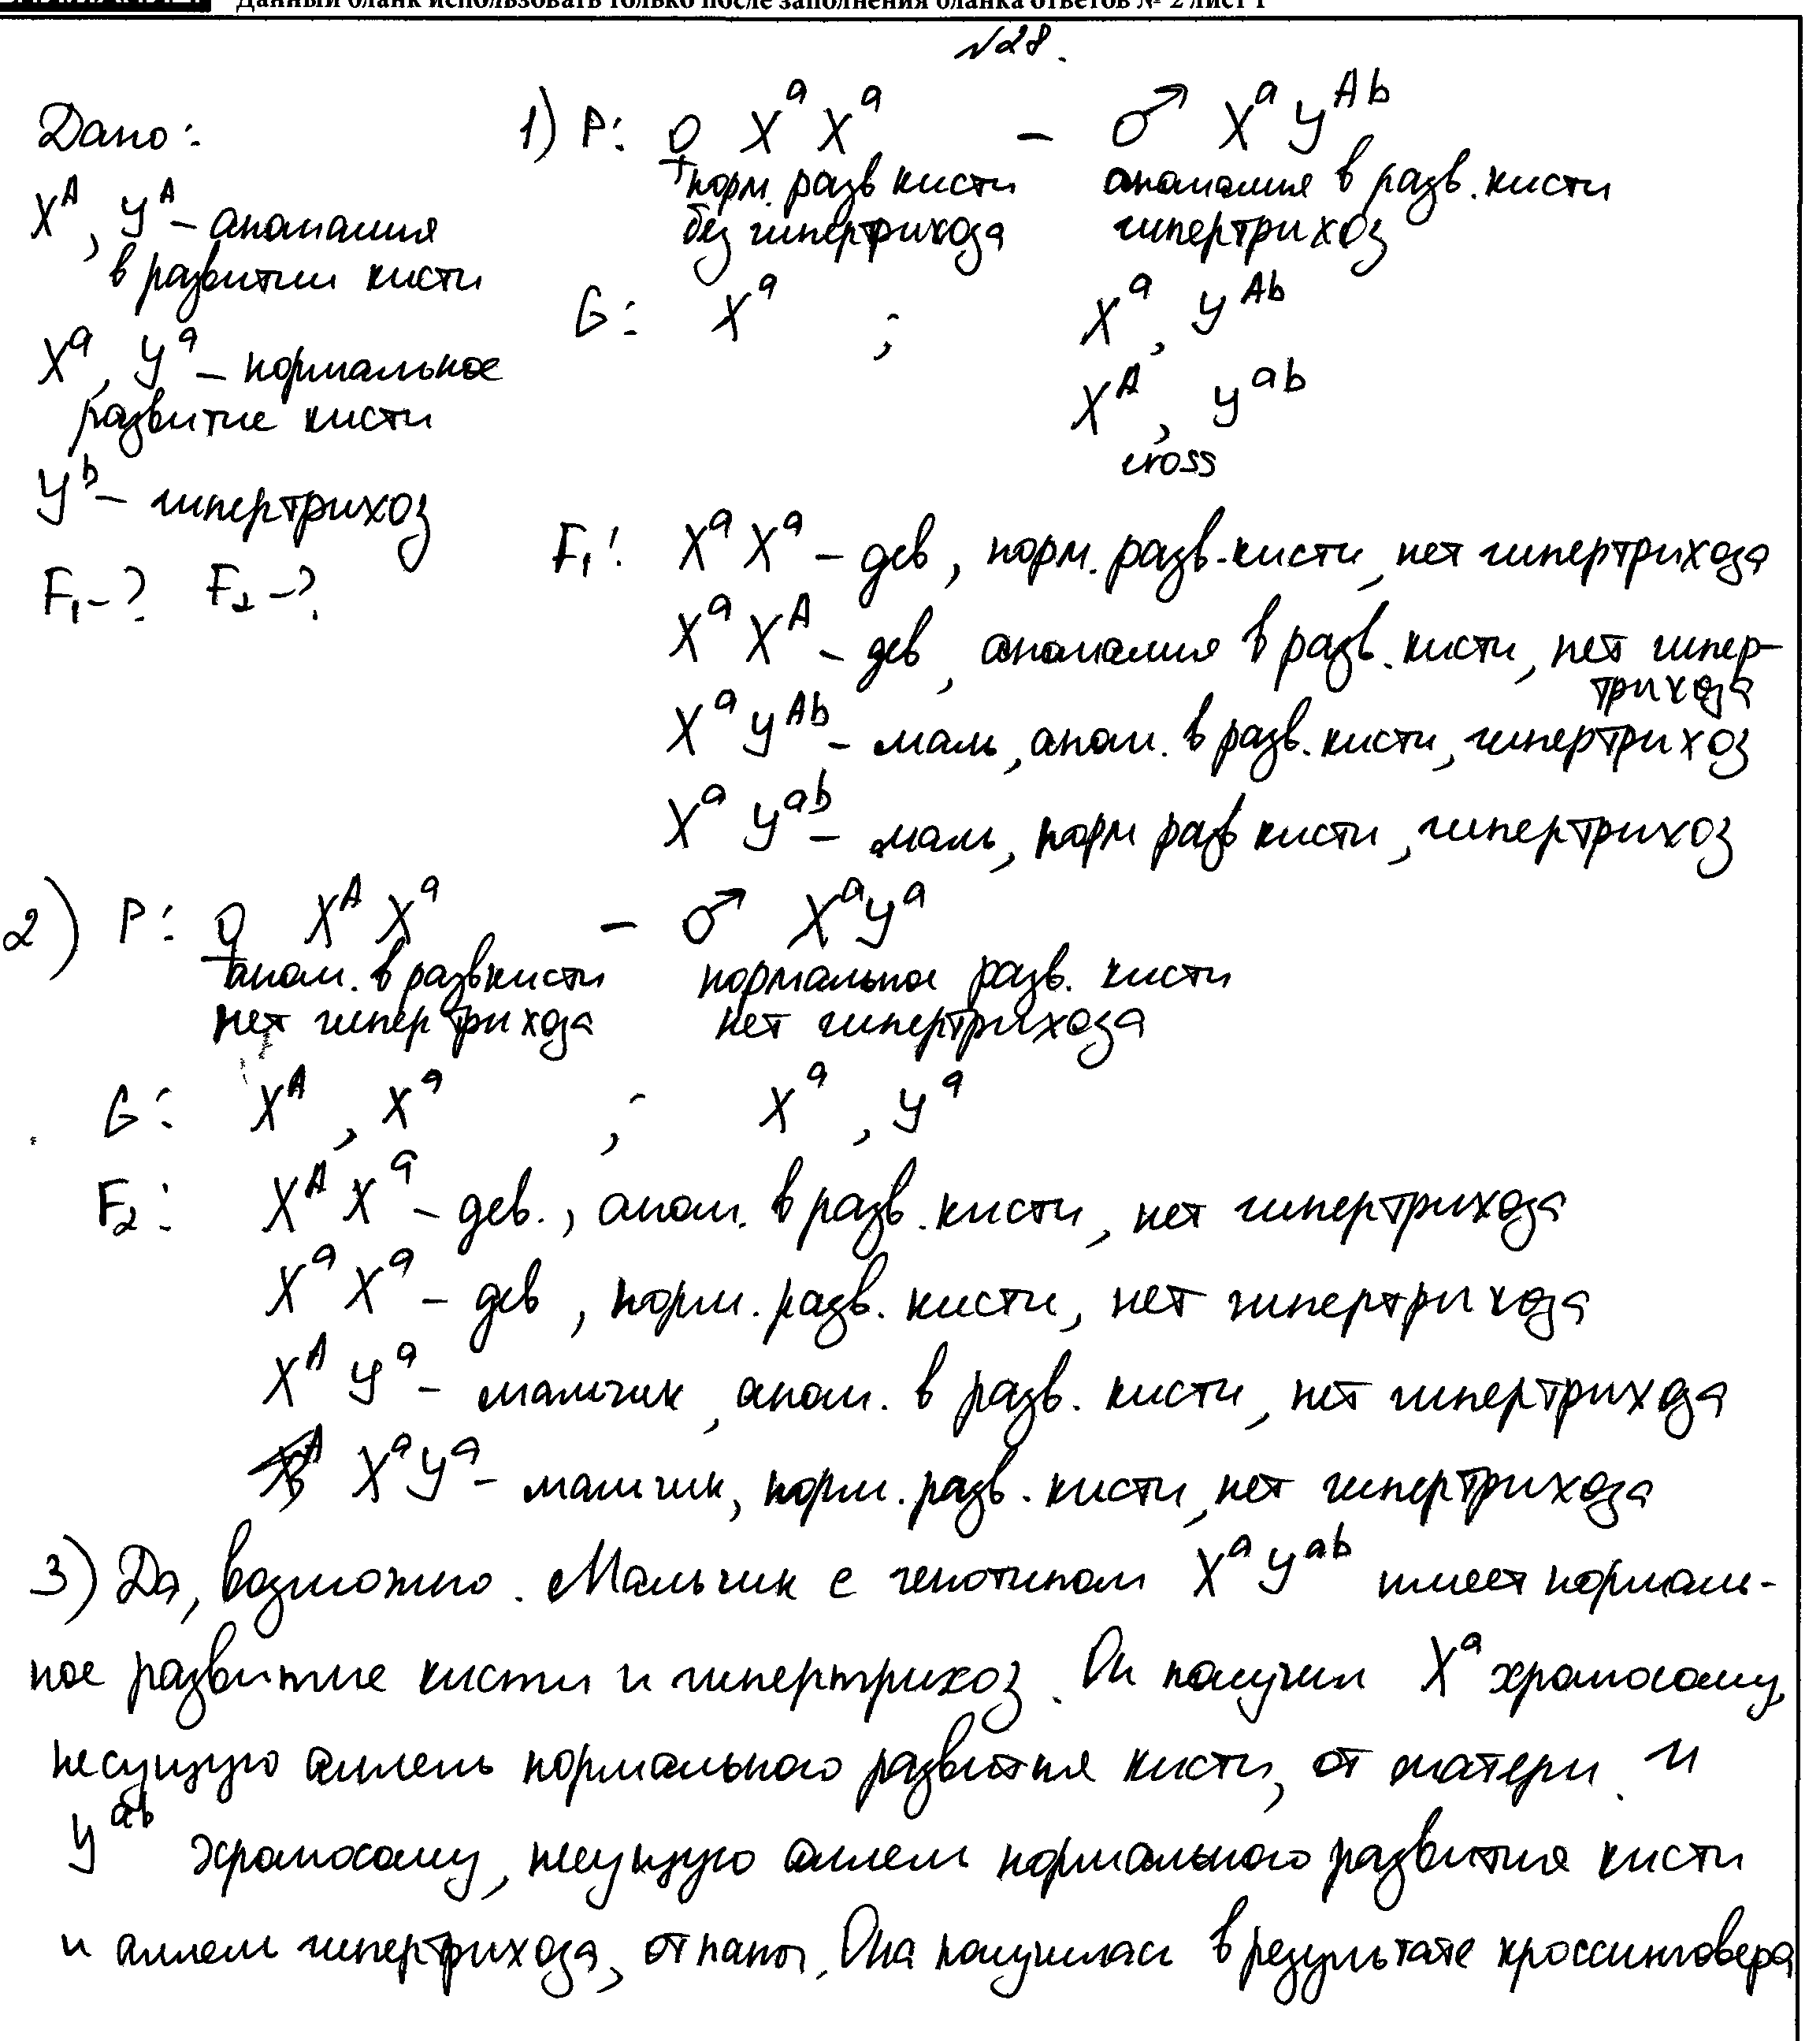 Данный бланк использовать только после заполнения бланка ответов № 2 лист 1
№28.
Дано:
X^A, Y^A – аномалия
в развитии кисти
X^a, Y^a – нормальное
развитие кисти
Y^b – гипертрихоз
F₁-? F₂-?
1) P: ♀ X^a X^a – ♂ X^a Y^Ab
норм. разв кисти аномалия в разв. кисти
без гипертрихоза гипертрихоз
G: X^a ; X^a, Y^Ab
X^A, Y^ab
cross
F₁: X^a X^a – дев, норм. разв. кисти, нет гипертрихоза
X^a X^A – дев, аномалия в разв. кисти, нет гипер-
трихоза
X^a Y^Ab – маль, аном. в разв. кисти, гипертрихоз
X^a Y^ab – маль, норм разв кисти, гипертрихоз
2) P: ♀ X^A X^a – ♂ X^a Y^a
аном. в разв кисти нормальное разв. кисти
нет гипертрихоза нет гипертрихоза
G: X^A, X^a ; X^a, Y^a
F₂: X^A X^a – дев., аном. в разв. кисти, нет гипертрихоза
X^a X^a – дев, норм. разв. кисти, нет гипертрихоза
X^A Y^a – мальчик, аном. в разв. кисти, нет гипертрихоза
X^a Y^a – мальчик, норм. разв. кисти, нет гипертрихоза
3) Да, возможно. Мальчик с генотипом X^a Y^ab имеет нормаль-
ное развитие кисти и гипертрихоз. Он получил X^a хромосому,
несущую аллель нормального развития кисти, от матери и
Y^ab хромосому, несущую аллель нормального развития кисти
и аллель гипертрихоза, от папы. Она получилась в результате кроссинговера